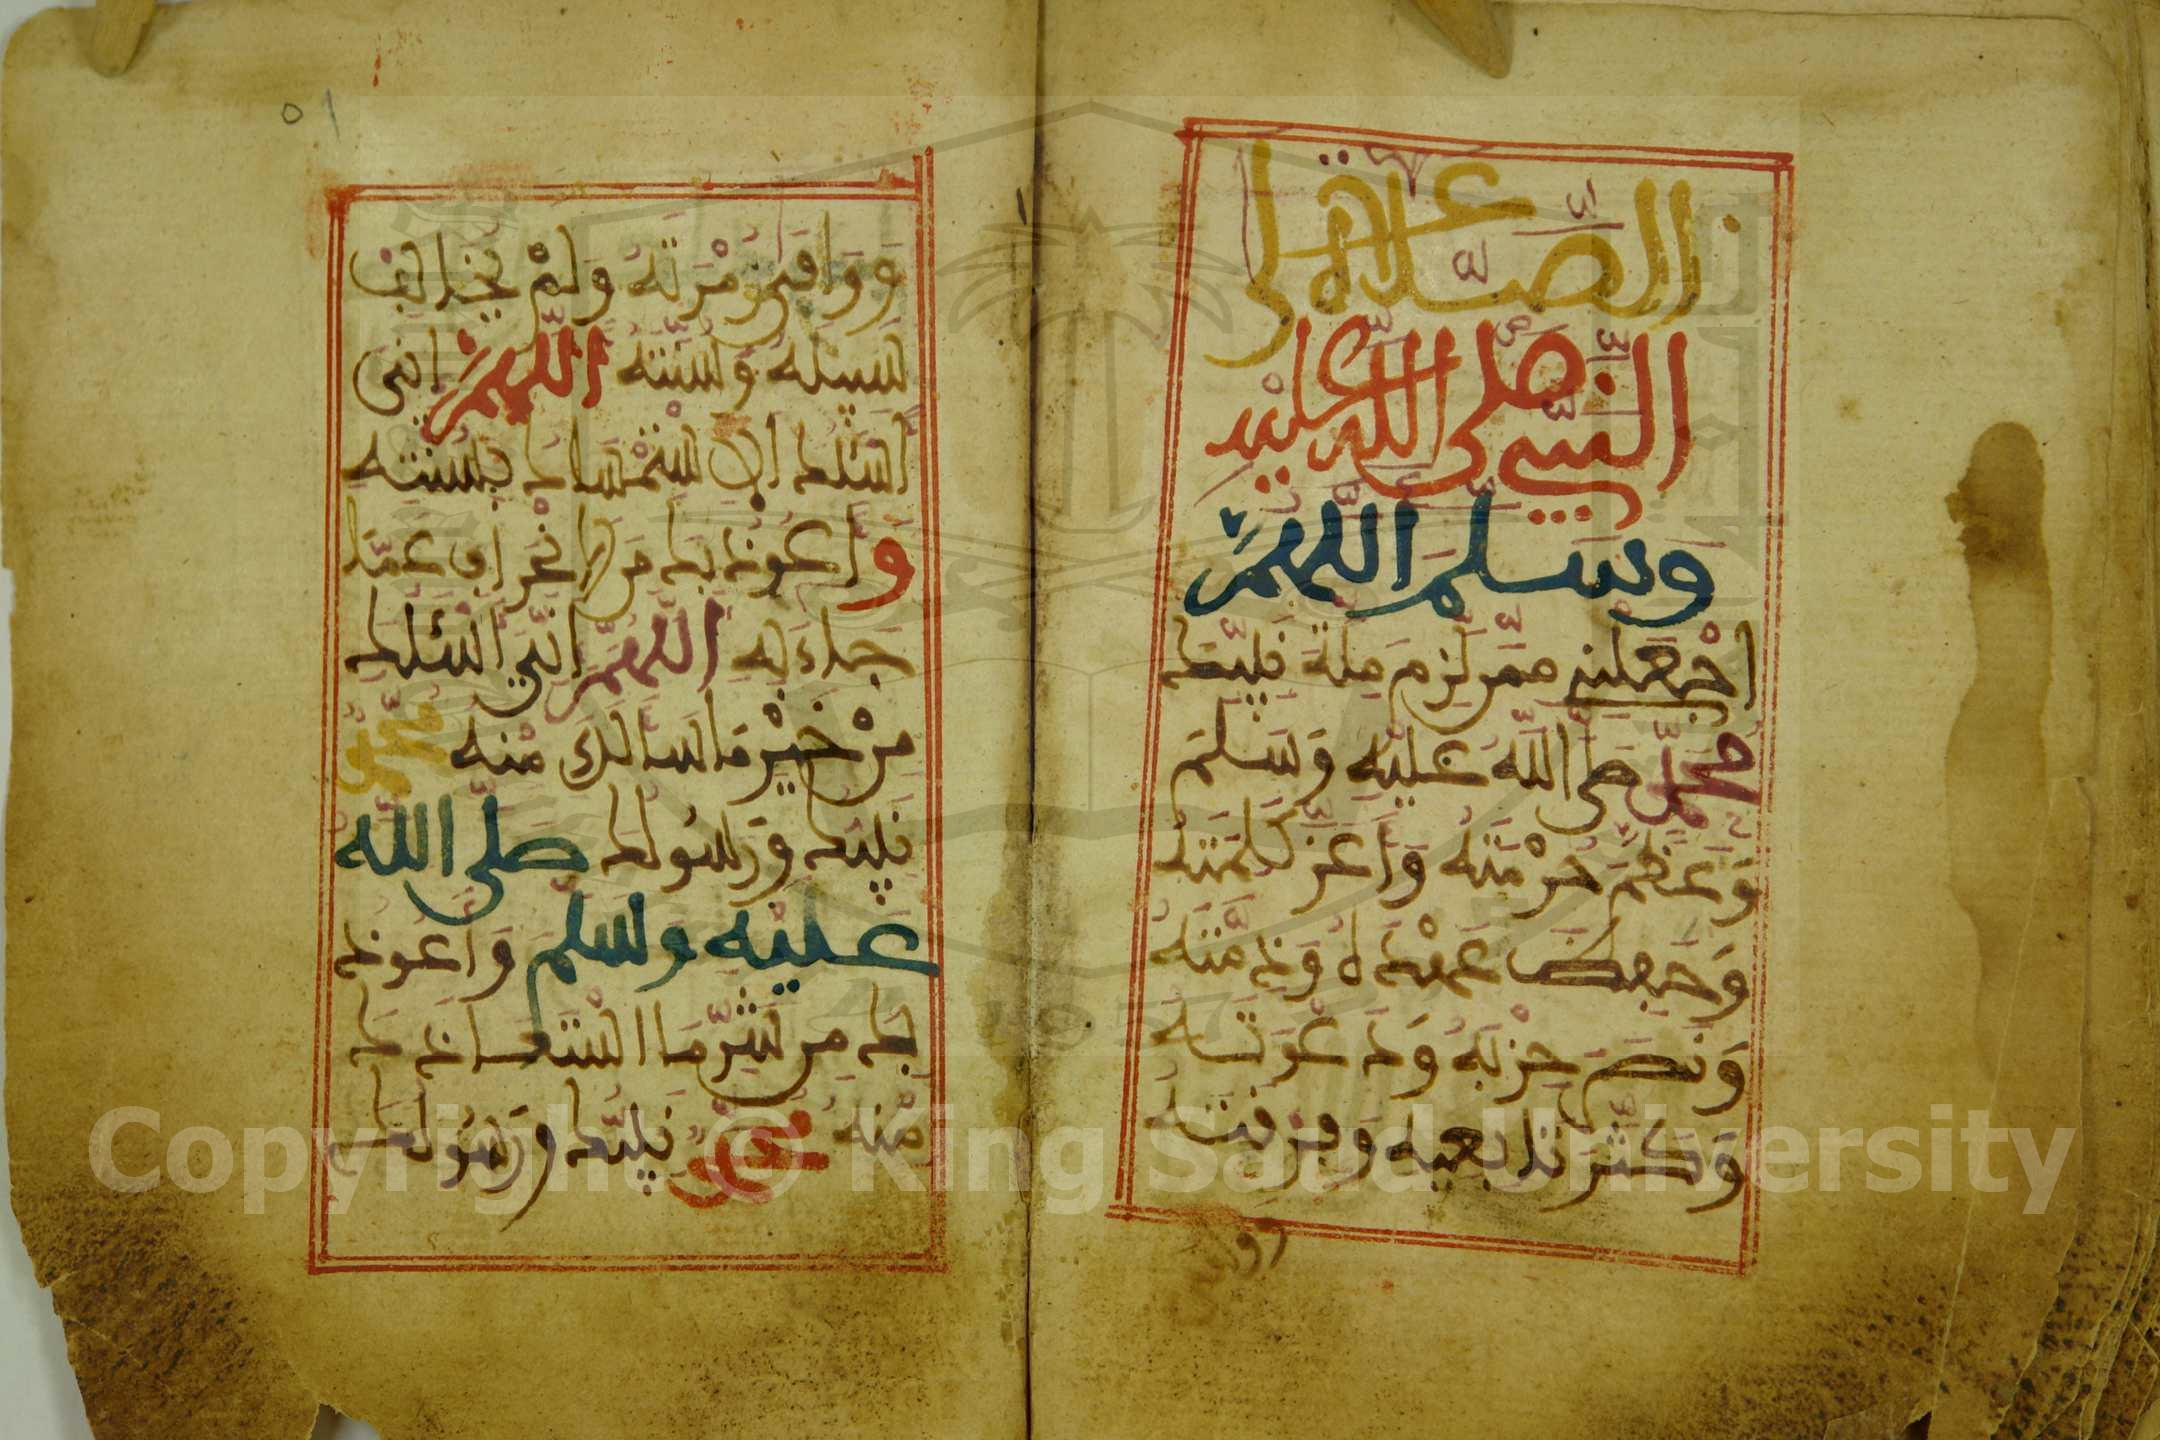 الصّلاة على
النّبيّ صلّى اللّه عليه
وَسَلّمَ اللّهُمَّ
اجْعَلْنِي مِمَّن لَزِمَ مِلَّةَ نَبِيِّكَ
مُحَمَّدٍ صَلَّى اللّهُ عَلَيْهِ وَسَلَّمَ
وَعَظَّمَ حُرْمَتَهُ وَأَعَزَّ كَلِمَتَهُ
وَحَفِظَ عَهْدَهُ وَذِمَّتَهُ
وَنَصَرَ حِزْبَهُ وَدَعْوَتَهُ
وَكَثَّرَ تَابِعِيهِ وَفِرْقَتَهُ
وَوَافَى زُمْرَتَهُ وَلَمْ يُخَالِفْ
سَبِيلَهُ وَسُنَّتَهُ اللّهُمَّ إنّي
أَسْئَلُكَ الِاسْتِمْسَاكَ بِسُنَّتِهِ
وَأَعُوذُ بِكَ مِنَ الِانْحِرَافِ عَمَّا
جَاءَ بِهِ اللّهُمَّ إِنِّي أَسْئَلُكَ
مِنْ خَيْرِ مَا سَأَلَكَ مِنْهُ مُحَمَّدٌ
نَبِيُّكَ وَرَسُولُكَ صَلَّى اللّهُ
عَلَيْهِ وَسَلَّمَ وَأَعُوذُ
بِكَ مِن شَرِّ مَا اسْتَعَاذَكَ
مِنْهُ مُحَمَّدٌ نَبِيُّكَ وَرَسُولُكَ
Copyright © King Saud University
1957